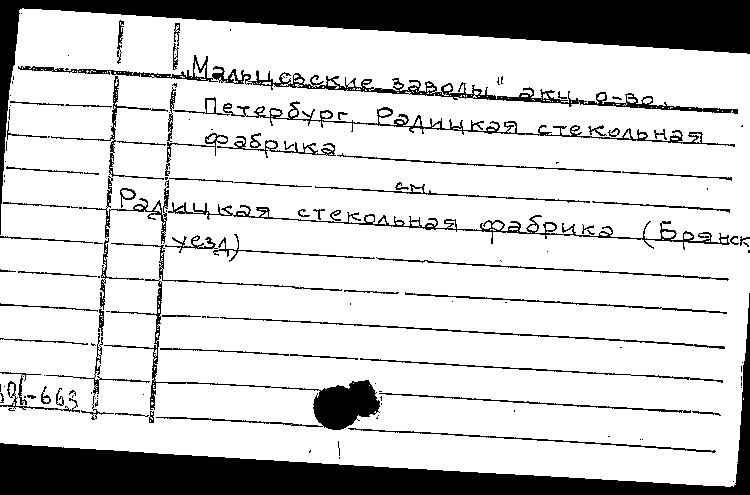 „Мальцевские заводы" акц. о-во.
Петербург, Радицкая стекольная
фабрика.
см.
Радицкая стекольная фабрика (Брянск
уезд)
-663